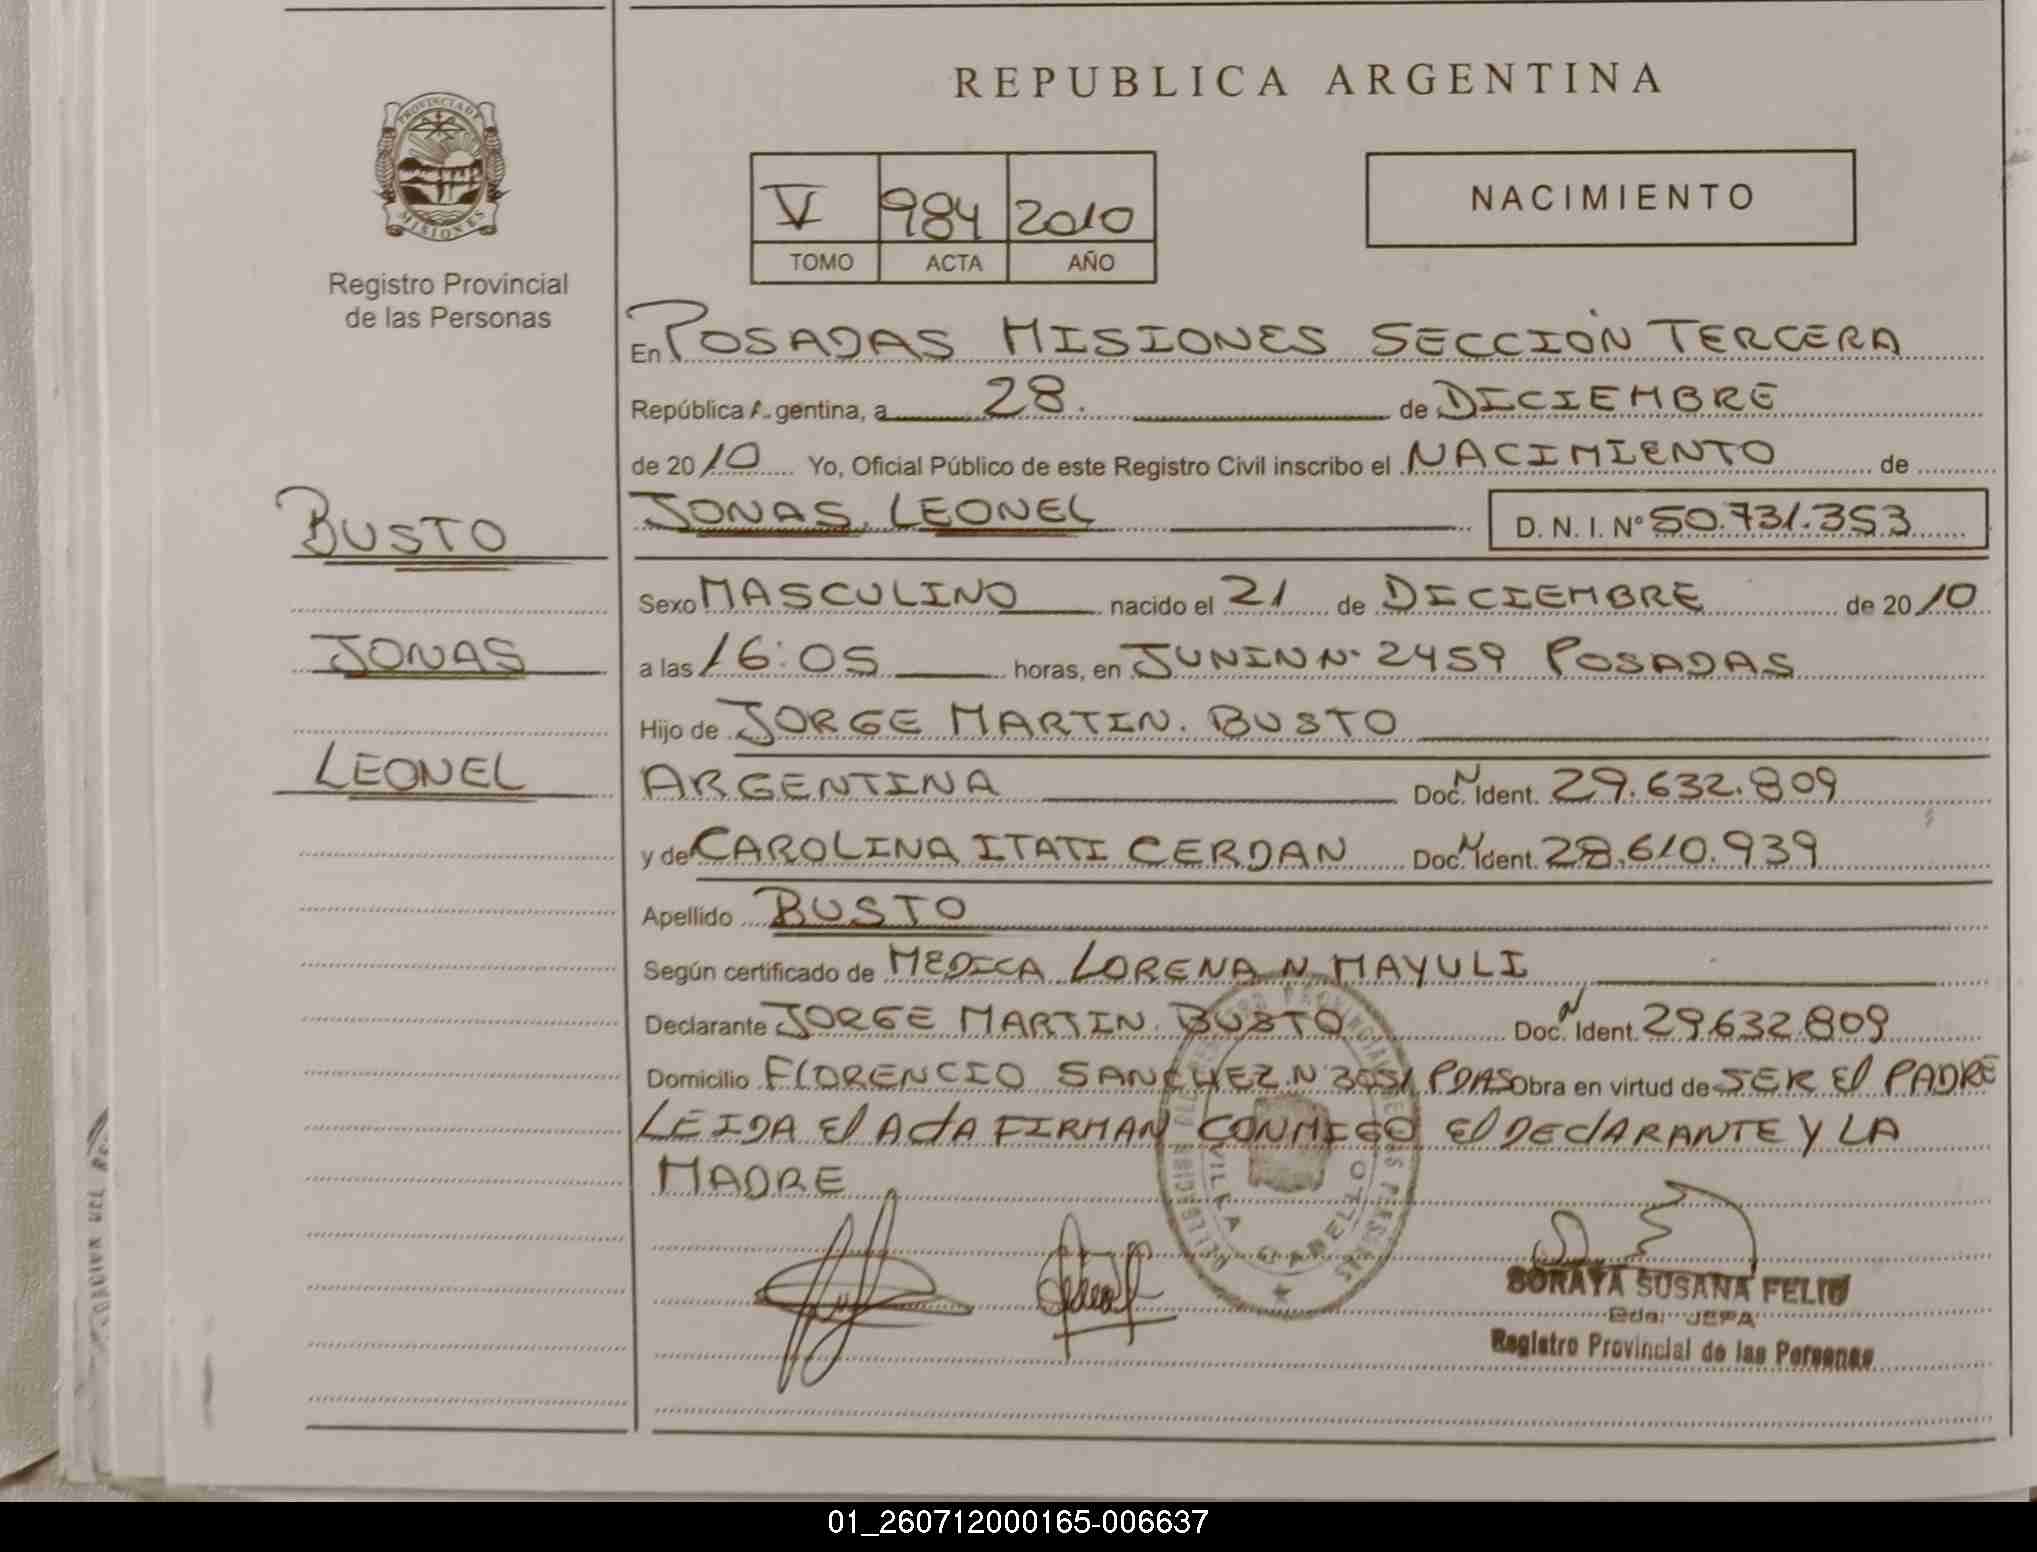 REPUBLICA ARGENTINA
PROVINCIA DE
MISIONES
Registro Provincial
de las Personas
V 984 2010
TOMO ACTA AÑO
NACIMIENTO
En POSADAS MISIONES SECCIÓN TERCERA
República Argentina, a 28. de DICIEMBRE
de 2010 Yo, Oficial Público de este Registro Civil inscribo el NACIMIENTO de
JONAS LEONEL D. N. I. N° 50.731.353
BUSTO
JONAS
LEONEL
Sexo MASCULINO nacido el 21 de DICIEMBRE de 2010
a las 16:05 horas, en JUNIN N° 2459 POSADAS
Hijo de JORGE MARTIN. BUSTO
ARGENTINA Doc. N Ident. 29.632.809
y de CAROLINA ITATI CERDAN Doc. N Ident. 28.610.939
Apellido BUSTO
Según certificado de MEDICA LORENA N MAYULI
Declarante JORGE MARTIN. BUSTO Doc. N Ident. 29.632.809
Domicilio FLORENCIO SANCHEZ N 3051 PDAS Obra en virtud de SER El PADRE
LEIDA El ActA FIRMAN CONMIGO El DEClARANTE Y LA
MADRE
VILLA CABELLO
SORAYA SUSANA FELIU
Registro Provincial de las Personas
01_260712000165-006637